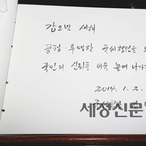 갑오년 새해
공정·투명한 국세행정을
국민의 신뢰를 더욱 높여 나가
2014. 1. 2.
세정신문